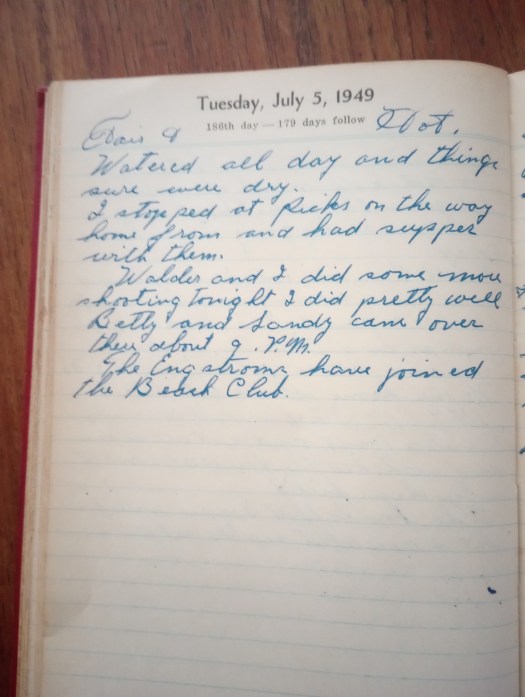 Tuesday, July 5, 1949
186th day — 179 days follow
Fair & Hot.
Watered all day and things
sure were dry.
I stopped at Ricks on the way
home from and had supper
with them.
Walder and I did some more
shooting tonight I did pretty well
Betty and Sandy came over
there about 9. P.M.
The Engstroms have joined
the Beach Club.